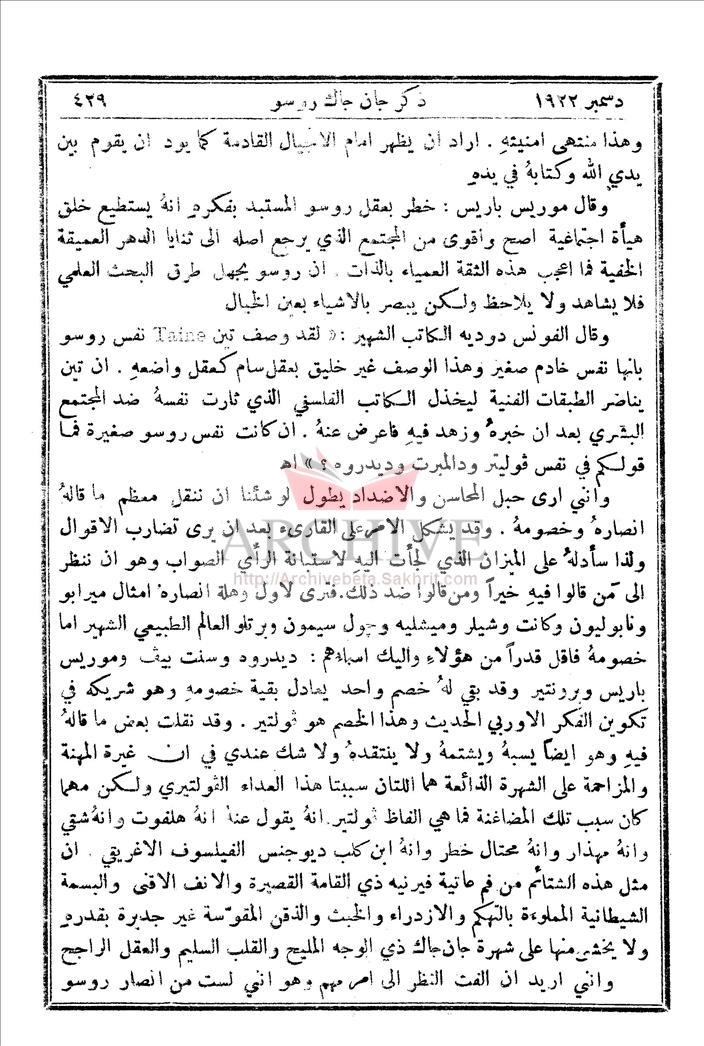 دسمبر ١٩٢٢ ذكر جان جاك روسو ٤٢٩
وهذا منتهى امنيتهِ . اراد ان يظهر امام الاجيال القادمة كما يود ان يقوم بين
يدي الله وكتابهُ في يدهِ
وقال موريس باريس : خطر بعقل روسو المستبد بفكرهِ انهُ يستطيع خلق
هيأة اجتماعية اصح واقوى من المجتمع الذي يرجع اصله الى ثنايا الدهر العميقة
الخفية فما اعجب هذه الثقة العمياء بالذات . ان روسو يجهل طرق البحث العلمي
فلا يشاهد ولا يلاحظ ولكن يبصر بالاشياء بعين الخيال
وقال الفونس دوديه الكاتب الشهير : « لقد وصف تين Taine نفس روسو
بانها نفس خادم صغير وهذا الوصف غير خليق بعقل سام كعقل واضعهِ . ان تين
يناضر الطبقات الفنية ليخذل الكاتب الفلسفي الذي ثارت نفسهُ ضد المجتمع
البشري بعد ان خبرهُ وزهد فيهِ فاعرض عنهُ . ان كانت نفس روسو صغيرة فما
قولكم في نفس ڤولتير ودالمبرت وديدروه ؟ » اه
وانني ارى حبل المحاسن والاضداد يطول لو شئنا ان ننقل معظم ما قالهُ
انصارهُ وخصومهُ . وقد يشكل الامر على القارىء بعد ان يرى تضارب الاقوال
ولذا سأدلهُ على الميزان الذي لجأت اليهِ لاستبانة الرأي الصواب وهو ان ننظر
الى مَن قالوا فيهِ خيراً ومن قالوا ضد ذلك. فنرى لاول وهلة انصاره امثال ميرابو
ونابوليون وكانت وشيلر وميشليه وجول سيمون وبرتلو العالم الطبيعي الشهير اما
خصومهُ فاقل قدراً من هؤلاءِ واليك اسماءهم : ديدروه وسنت بيف وموريس
باريس وبرونتير وقد بقي لهُ خصم واحد يعادل بقية خصومهِ وهو شريكه في
تكوين الفكر الاوربي الحديث وهذا الخصم هو ڤولتير . وقد نقلت بعض ما قالهُ
فيهِ وهو ايضاً يسبهُ ويشتمهُ ولا ينتقدهُ ولا شك عندي في ان غيرة المهنة
والمزاحمة على الشهرة الذائعة هما اللتان سببتا هذا العداء الڤولتيري ولكن مهما
كان سبب تلك المضاغنة فما هي الفاظ ڤولتير. انهُ يقول عنهُ انهُ هلفوت وانهُ شقي
وانهُ مهذار وانهُ محتال خطر وانهُ ابن كلب ديوجنس الفيلسوف الاغريقي . ان
مثل هذه الشتائم من فم عاتية فيرنيه ذي القامة القصيرة والانف الاقنى والبسمة
الشيطانية المملوءة بالتهكم والازدراء والخبث والذقن المقوّسة غير جديرة بقدرهِ
ولا يخشى منها على شهرة جان جاك ذي الوجه المليح والقلب السليم والعقل الراجح
وانني اريد ان الفت النظر الى امر مهم وهو انني لست من انصار روسو
ARCHIVE
http://Archivebeta.Sakhrit.com